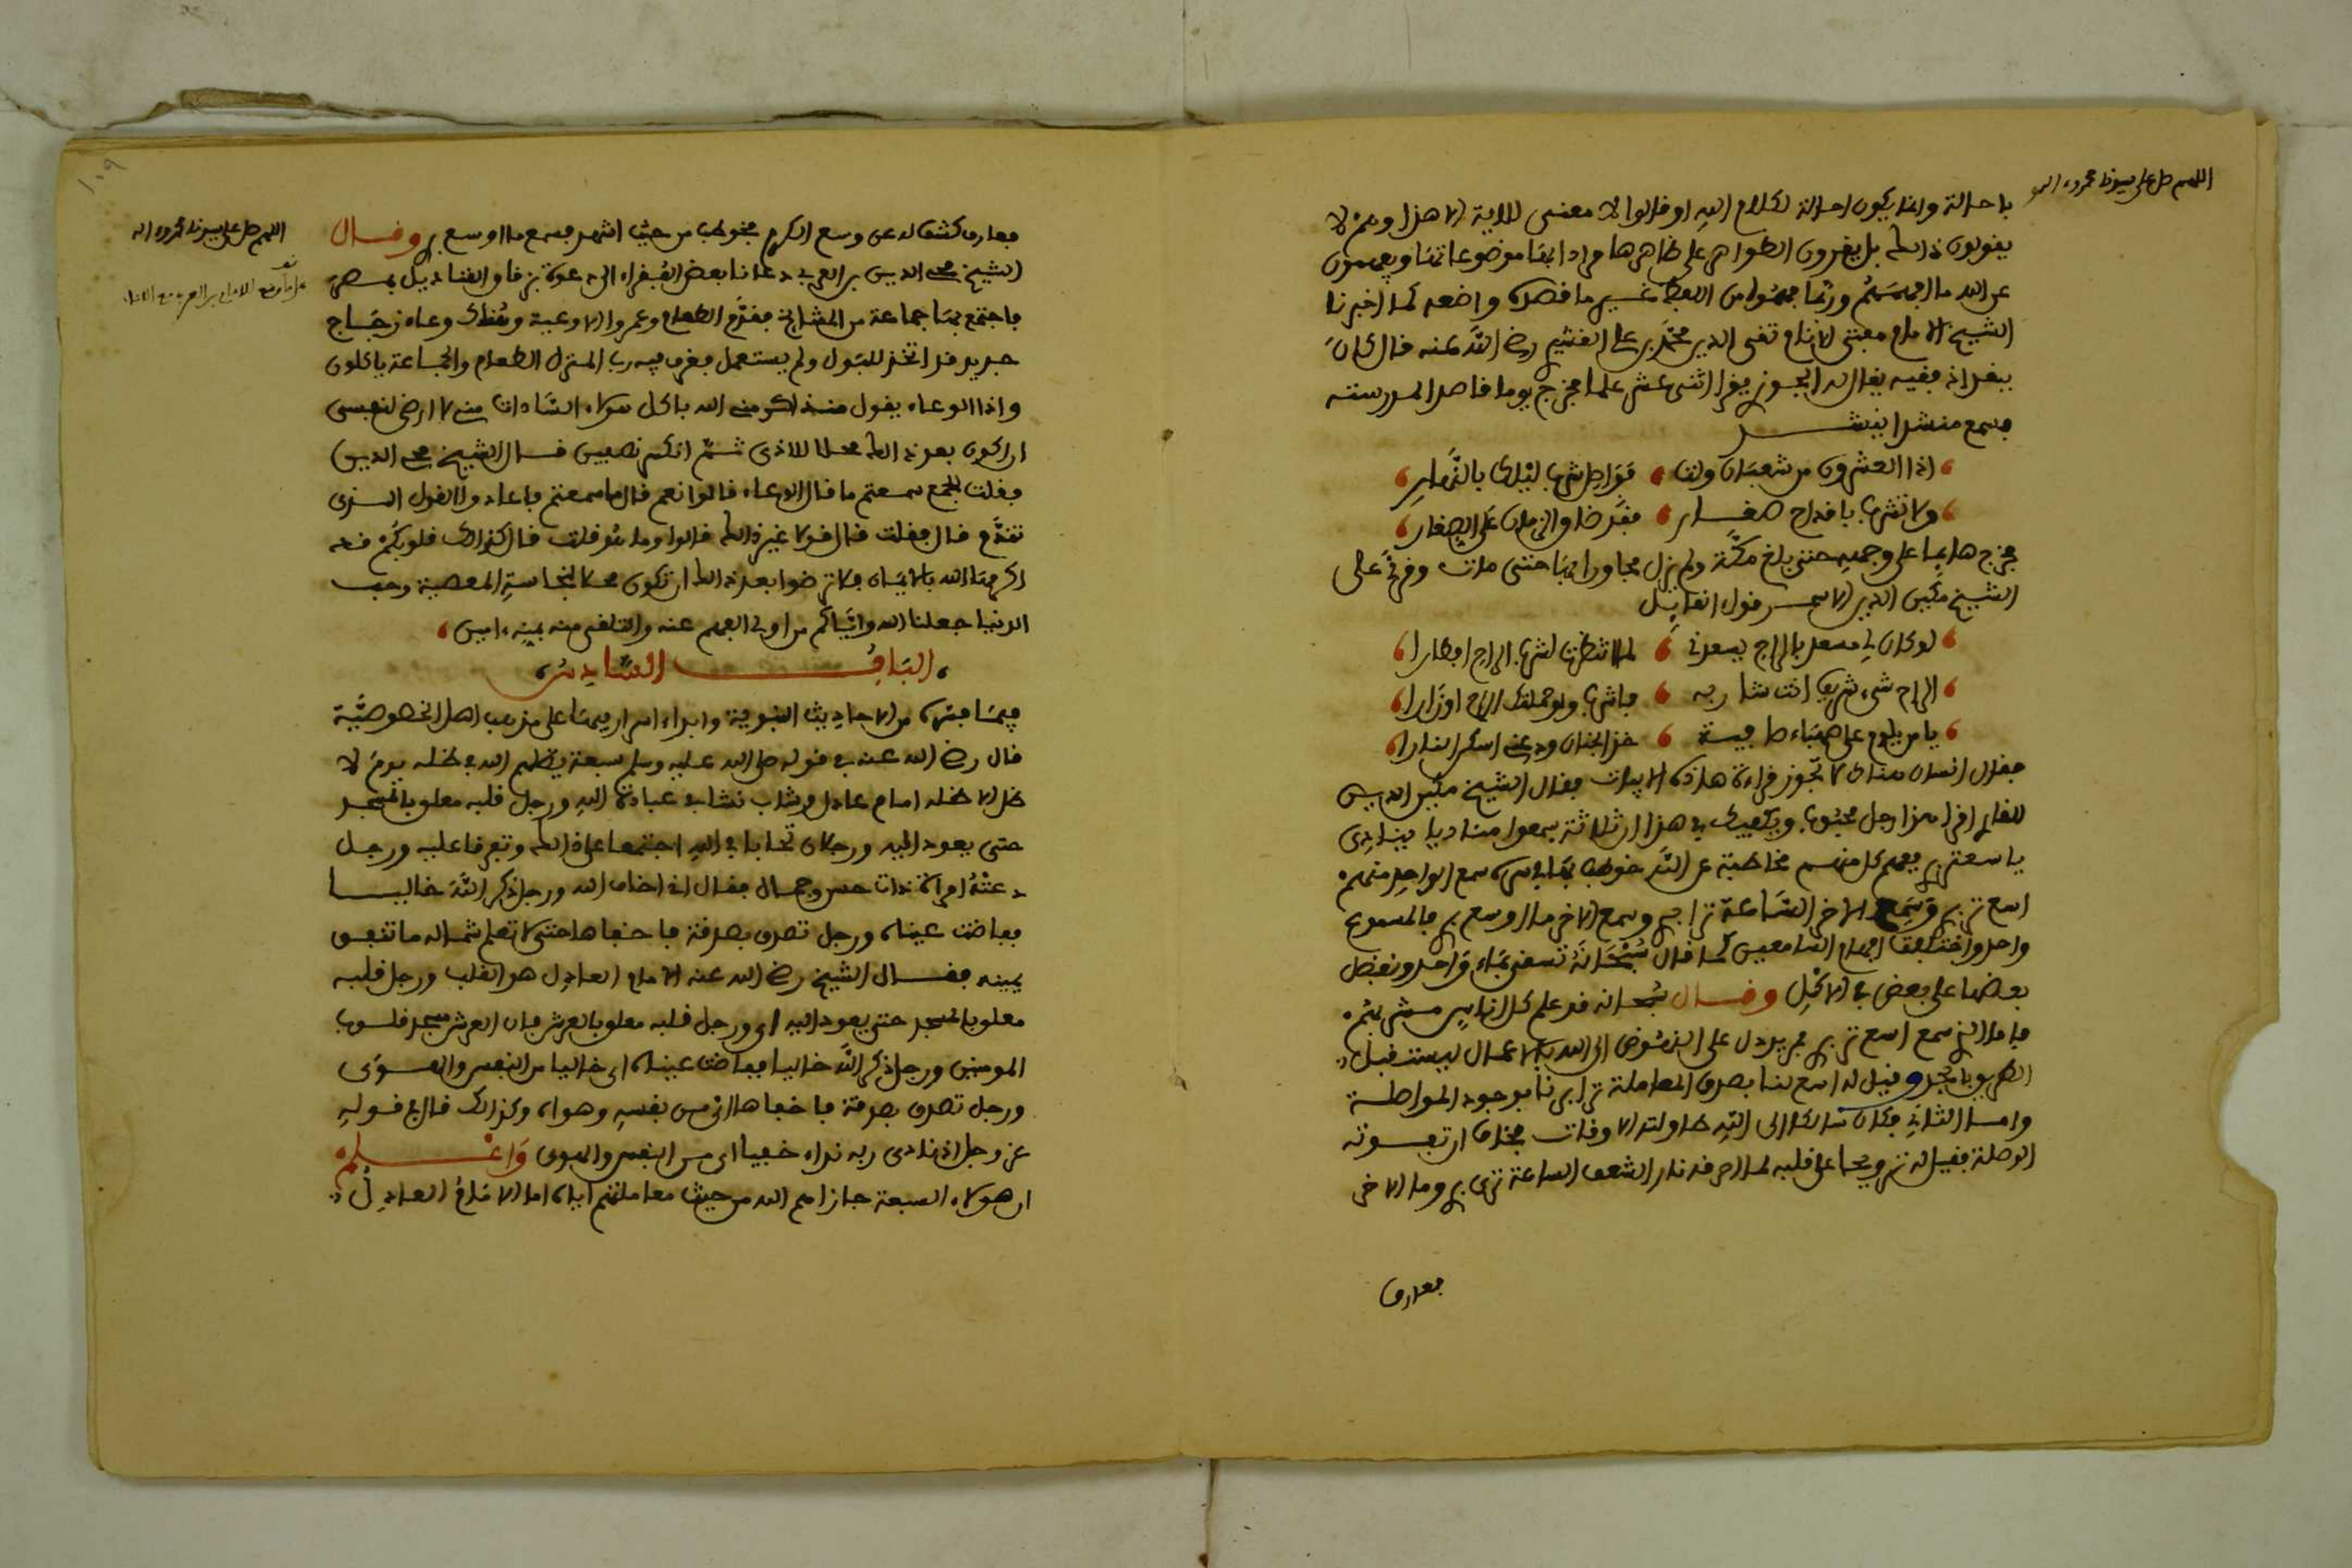 اللهم صل على سيدنا محمد وءاله
باحالة وانما يكون احالة لكلام الله لو قالوا لا معنى للاية الا هذا وهم لا
يقولون ذالك بل يقرون الظواهر على ظاهرها مرادا بها موضوعاتها ويفهمون
عن الله ما افهمهم وربما فهموا من اللفظ غير ما قصده واضعه كما اخبرنا
الشيخ الامام مفتى الانام تقى الدين محمد بن على القشيرى رضى الله عنه قال كان
ببغداذ فقيه يقال له الجوزى يقرا اثنى عشر علما فخرج يوما قاصدا لمدرسته
فسمع منشدا ينشد
اذا العشرون من شعبان ولت فواصل شرب ليلك بالنهار
ولا تشرب باقداح صغار فقد ضاق الزمان على الصغار
فخرج هائما على وجهه حتى بلغ مكة ولم يزل مجاورا بها حتى مات وقرئ على
الشيخ مكين الدين الاسمر قول القايل
لو كان لى مسعد بالراح يسعدنى لما انتظرت لشرب الراح افطارا
الراح شىء شريف انت شاربه فاشرب ولو حملتك الراح اوزارا
يا من يلوم على صهباء صافية خذ الجنان ودعنى اسكن النارا
فقال انسان هنالك لا تجوز قراءة هاذه الابيات فقال الشيخ مكين الدين
للقارى اقرا هذا رجل محجوب ويكفيك فى هذا ان ثلاثة سمعوا مناديا ينادى
يا سعتر برى ففهم كل منهم مخاطبة عن الله خوطب بها فى سره سمع الواحد منهم
اسع تر برى وسمع الاخر الساعة ترى برى وسمع الاخر ما اوسع برى فالمسموع
واحد واختلفت افهام السامعين كما قال سبحانه تسقى بماء واحد ونفضل
بعضها على بعض فى الاكل وقال سبحانه قد علم كل اناس مشربهم
فاما الذى سمع اسع تر برى فمريد دل على النهوض الى الله بالاعمال ليستقبل
الطريق بالجد وقيل له اسع لنا بصدق المعاملة تر برنا بوجود المواصلة
واما الثانى فكان سالكا الى الله طاولته الاوقات فخاف ان تفوته
الوصلة فقيل له ترويحا على قلبه لما احرقه نار الشغف الساعة ترى برى وما الاخر
فعارف
١٠٩
اللهم صل على سيدنا محمد وءاله
فعارف كشف له عن وسع الكرم فخوطب من حيث اشهد فسمع ما اوسع برى وقال
الشيخ محى الدين بن العربى دعانا بعض الفقراء الى دعوة بزقاق القناديل بمصر
فاجتمع بها جماعة من المشايخ فقدم الطعام وعمروا الاوعية وهناك وعاء زجاج
جديد قد اتخذ للبول ولم يستعمل فغرف فيه رب المنزل الطعام والجماعة ياكلون
واذا الوعاء يقول منذ اكرمنى الله باكل هؤلاء السادات منى لا ارضى لنفسى
ان اكون بعد ذالك محلا للاذى ثم انكسر نصفين قال الشيخ محى الدين
فقلت للجمع سمعتم ما قال الوعاء قالوا نعم قال ما سمعتم فاعادوا القول الذى
تقدم قال فقلت قال قولا غير ذالك قالوا وما هو قلت قال كذالك قلوبكم قد
اكرمها الله بالايمان فلا ترضوا بعد ذالك ان تكون محلا لنجاسة المعصية وحب
الدنيا جعلنا الله واياكم من اولى الفهم عنه والتلقى منه بمنه ءامين
الباب السادس
فيما فسره من الاحاديث النبوية وابداء اسرار فيها على مذهب اهل الخصوصية
قال رضى الله عنه فى قوله صلى الله عليه وسلم سبعة يظلهم الله فى ظله يوم لا
ظل الا ظله امام عادل وشاب نشا فى عبادة الله ورجل قلبه معلق بالمسجد
حتى يعود اليه ورجلان تحابا فى الله اجتمعا على ذالك وتفرقا عليه ورجل
دعته امراة ذات حسن وجمال فقال انى اخاف الله ورجل ذكر الله خاليا
ففاضت عيناه ورجل تصدق بصدقة فاخفاها حتى لا تعلم شماله ما تنفق
يمينه فقال الشيخ رضى الله عنه الامام العادل هو القلب ورجل قلبه
معلق بالمسجد حتى يعود اليه اى ورجل قلبه معلق بالعرش فان العرش مسجد قلوب
المومنين ورجل ذكر الله خاليا ففاضت عيناه اى خاليا من النفس والهوى
ورجل تصدق بصدقة فاخفاها اى من نفسه وهواه وكذالك قال فى قوله
عز وجل اذ نادى ربه نداء خفيا اى من النفس والهوى واعلم
ان هؤلاء السبعة جازاهم الله من حيث معاملتهم اياه اما الامام العادل